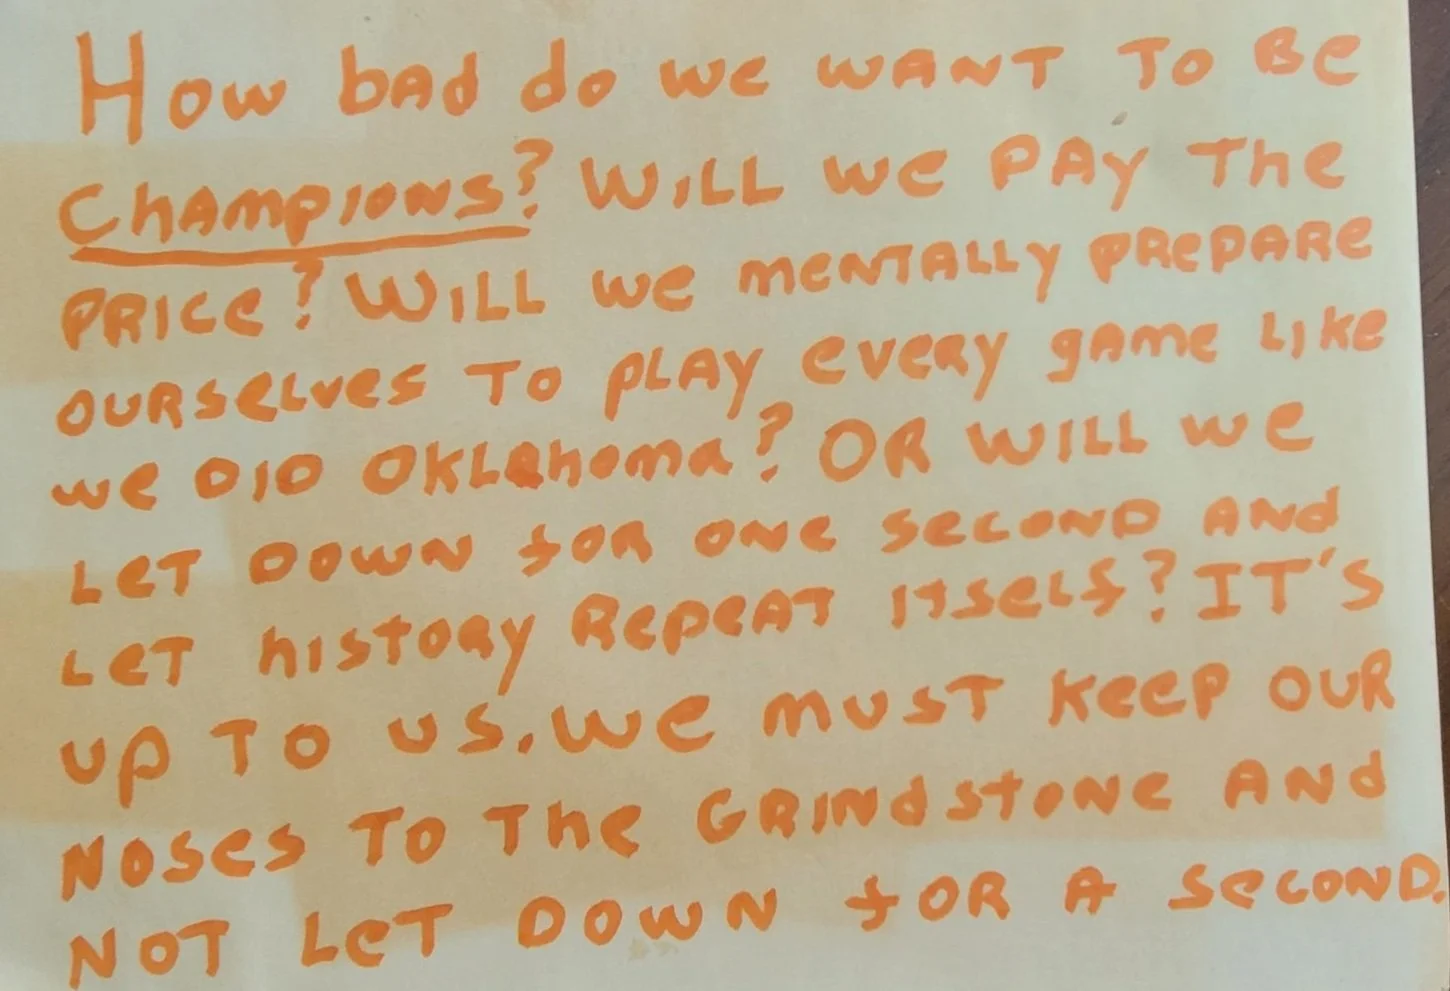 How bad do we want to be
Champions? Will we pay the
price? Will we mentally prepare
ourselves to play every game like
we did Oklahoma? Or will we
let down for one second and
let history repeat itself? It's
up to us. We must keep our
noses to the grindstone and
not let down for a second.